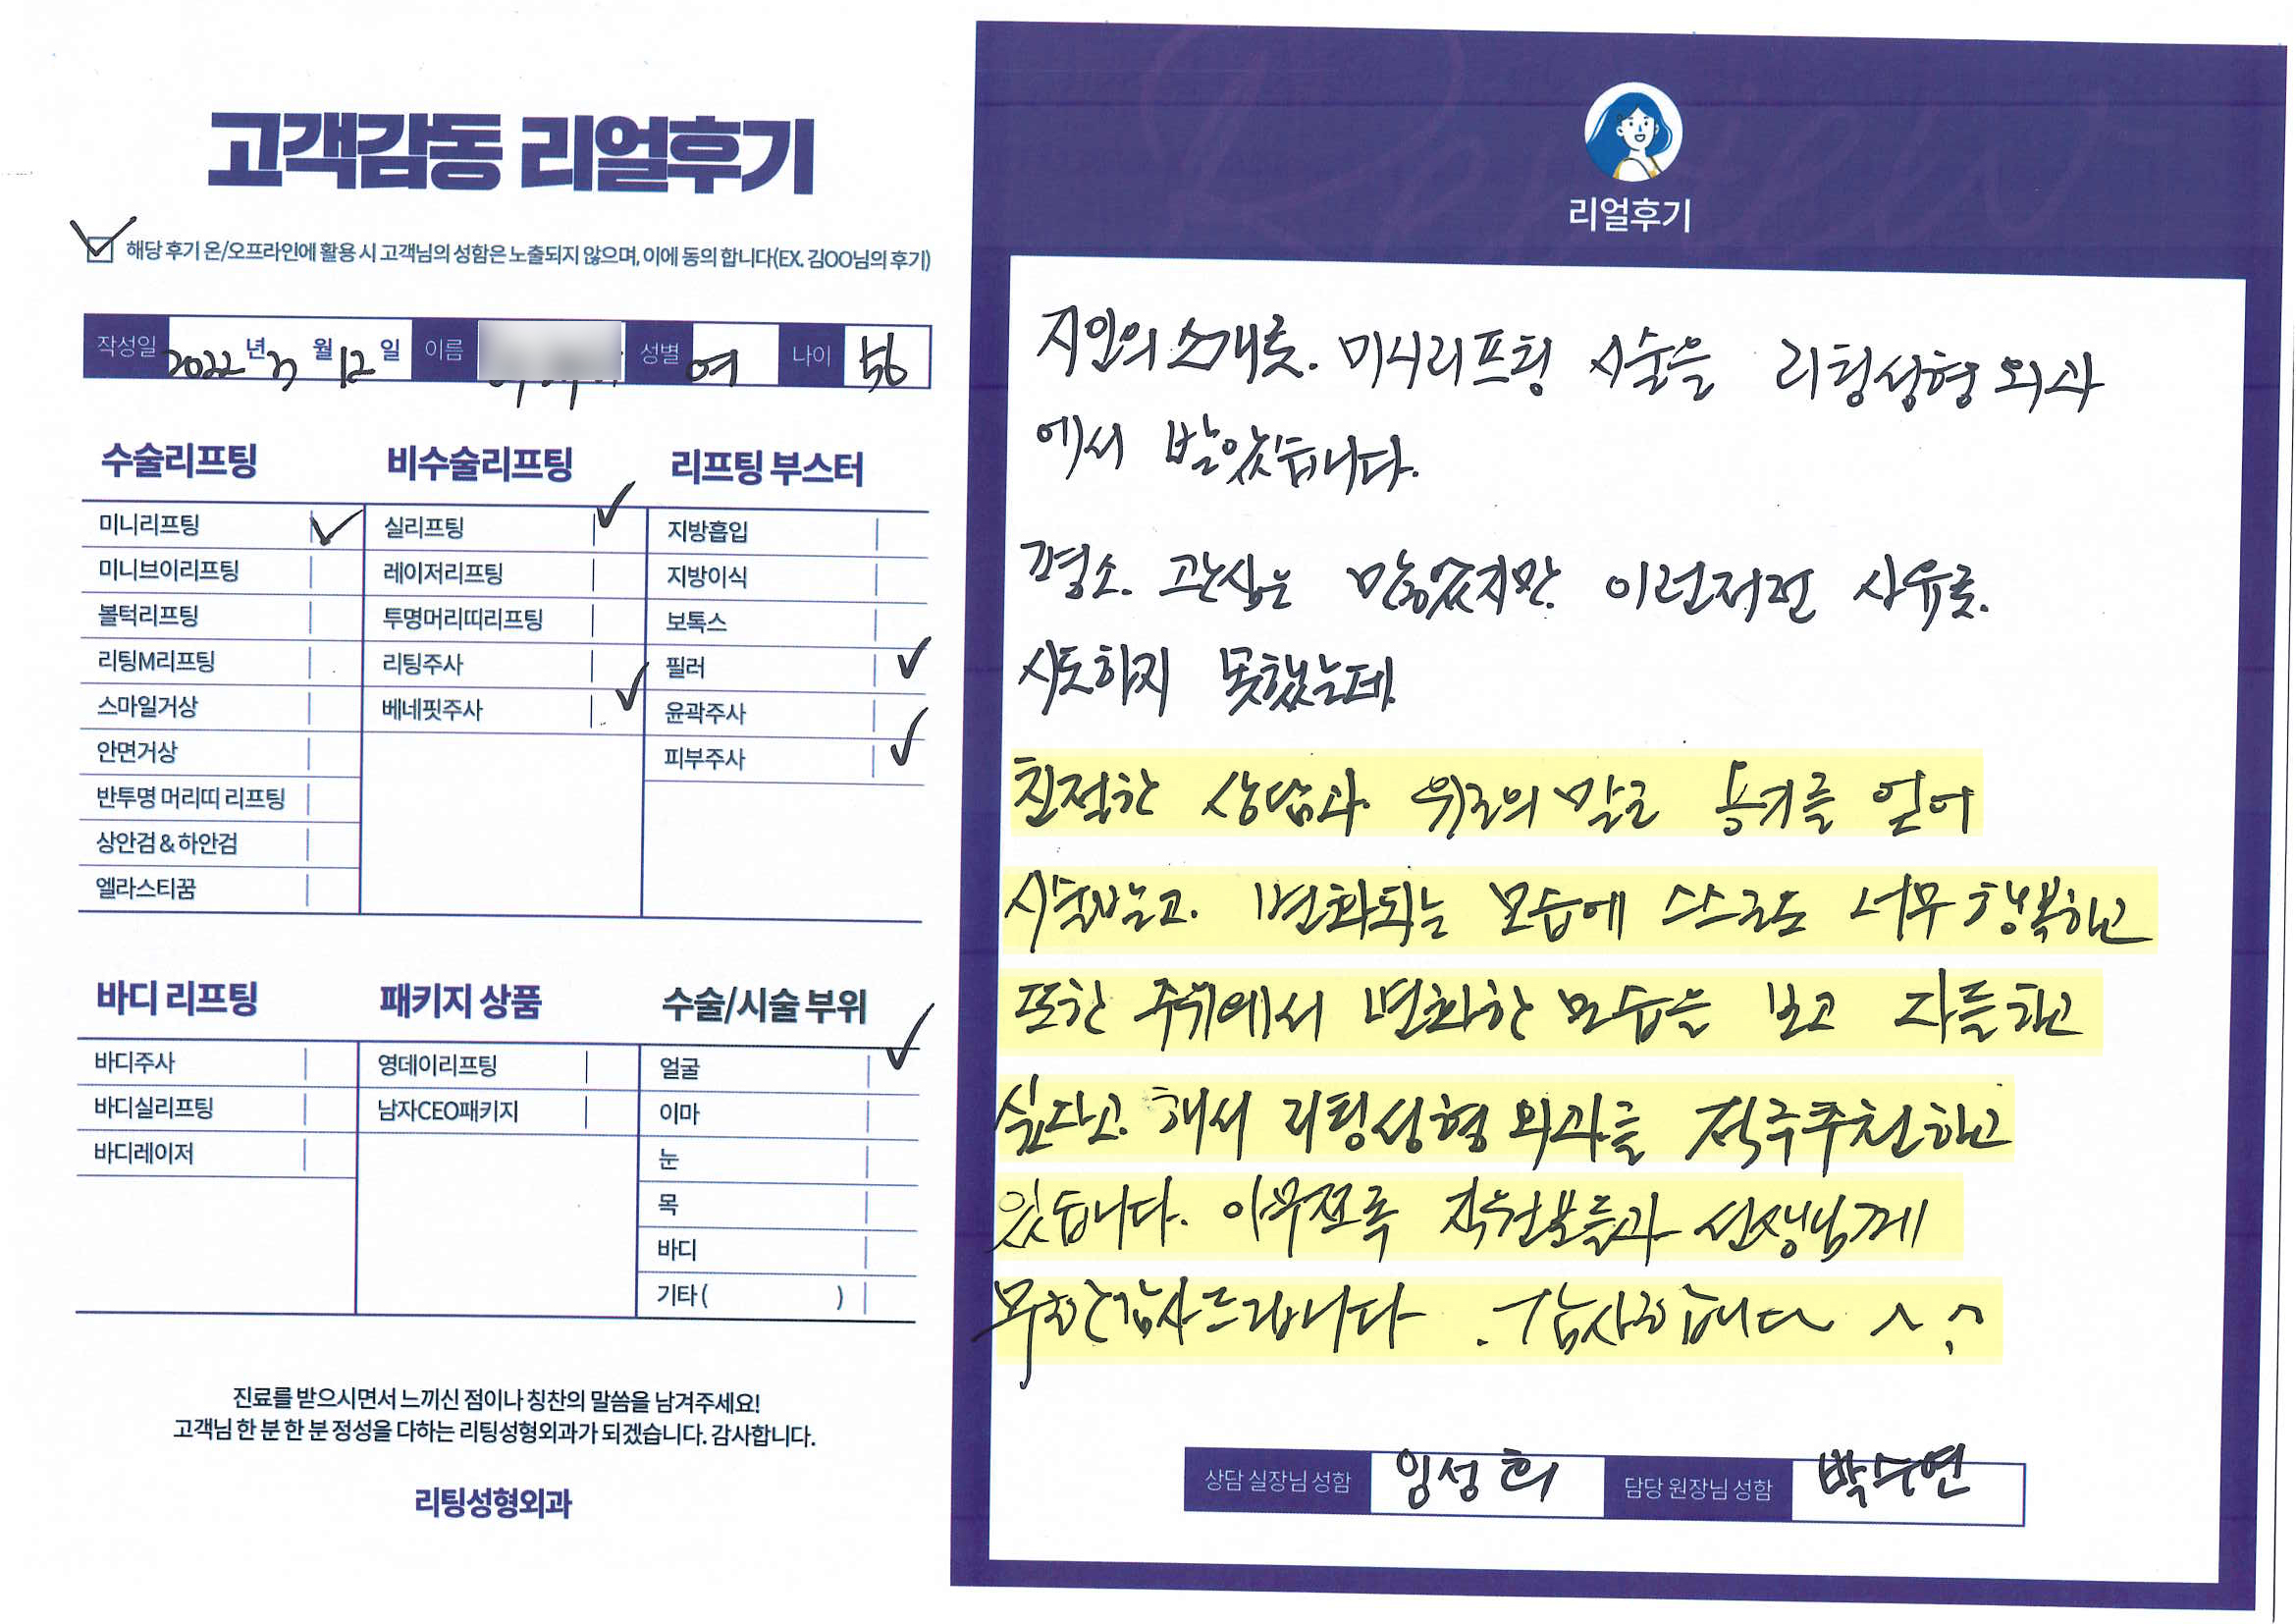 고객감동 리얼후기
해당 후기 온/오프라인에 활용 시 고객님의 성함은 노출되지 않으며, 이에 동의 합니다(EX. 김OO님의 후기)
작성일 2022 년 월 12 일 이름 성별 여 나이 56
수술리프팅
미니리프팅
미니브이리프팅
볼턱리프팅
리팅M리프팅
스마일거상
안면거상
반투명 머리띠 리프팅
상안검 & 하안검
엘라스티꿈
비수술리프팅
실리프팅
레이저리프팅
투명머리띠리프팅
리팅주사
베네핏주사
리프팅 부스터
지방흡입
지방이식
보톡스
필러
윤곽주사
피부주사
바디 리프팅
바디주사
바디실리프팅
바디레이저
패키지 상품
영데이리프팅
남자CEO패키지
수술/시술 부위
얼굴
이마
눈
목
바디
기타 ( )
진료를 받으시면서 느끼신 점이나 칭찬의 말씀을 남겨주세요!
고객님 한 분 한 분 정성을 다하는 리팅성형외과가 되겠습니다. 감사합니다.
리팅성형외과
리얼후기
지인의 소개로. 미니리프팅 시술을 리팅성형외과
에서 받았습니다.
평소. 관심은 많았지만 이런저런 사유로.
시도하지 못했는데
친절한 상담과 위로의 말로 용기를 얻어
시술받고. 변화되는 모습에 스스로도 너무 행복하고
또한 주위에서 변화한 모습을 보고 다들하고
싶다고. 해서 리팅성형외과를 적극추천하고
있습니다. 아무쪼록 직원분들과 선생님께
무한감사드립니다. 감사합니다 ^^
상담 실장님 성함 임성희 담당 원장님 성함 박수연